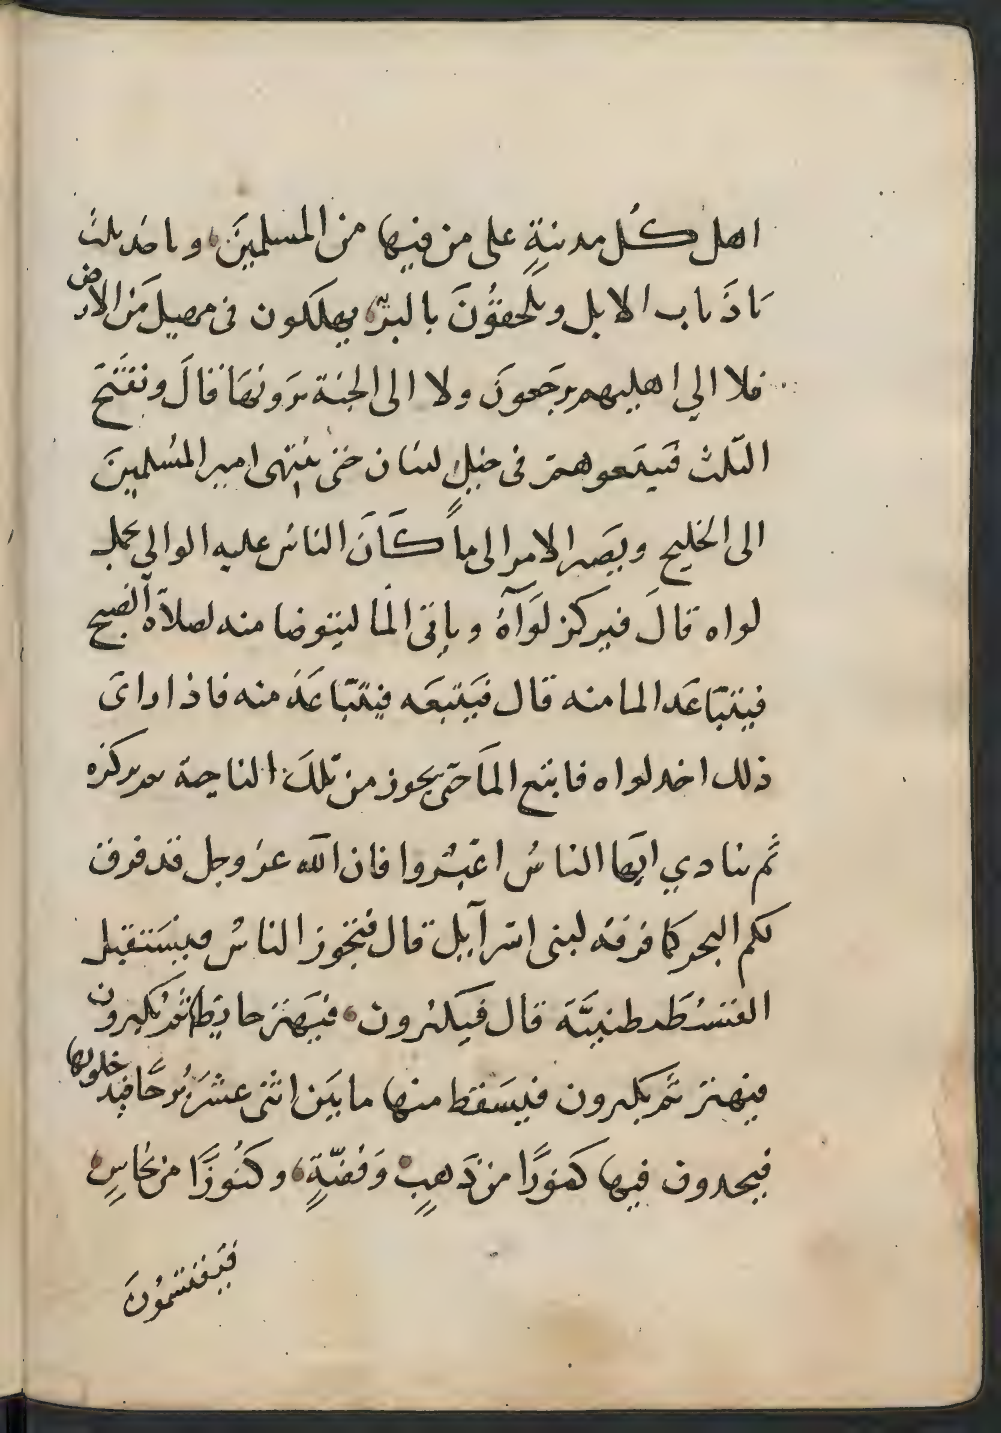 اهل كُل مدينةٍ على من فيها من المسلمينَ وياخد ثلث
باذَناب الابل ويلحقوُنَ بالبرّ يهلكون فى مهيل مَن الارض
فلا الي اهليهم يرَجعونَ ولا الى الجنة يرَونهَا قالَ ونفتَح
الثلث فيتبعوهم فى جبلِ لبنان حتى ينتهى امير المسُلمينَ
الى الخليح ويصَير الامر الى ماً كَانَ الناسُ عليه الوالي يحمل
لواه قالَ فيركز لوَآهُ وياتى المَا ليتوضا منه لصلآة الصبح
فيتبَاعَد الما منه قال فيَتبعَه فيتبَاعَدَ منه فاذا راىَ
ذلك اخد لواه فاتبع المَآ حتى يجوز من تلكَ الناحية ثم يركزه
ثُم ينادي ايهَا الناسُ اعبُروا فان الله عز وجل قد فرق
لكم البحر كما فرقهُ لبنى اسرآيل قال فتجوز الناسُ فيسَتقبل
القسُطَنطنيَّة قال فيكبرُون فيَهتز حايطها ثُم يكبرون
فيهتز ثمَ يكبرون فيسَقط منها ما بيَن اثنى عشَر بُرجًا فيدخلونها
فيجدون فيها كنوزًا من ذَهبٍ وَفضّةٍ وكنُوزًا من نحُاسٍ
فيَقتسَموُنَ